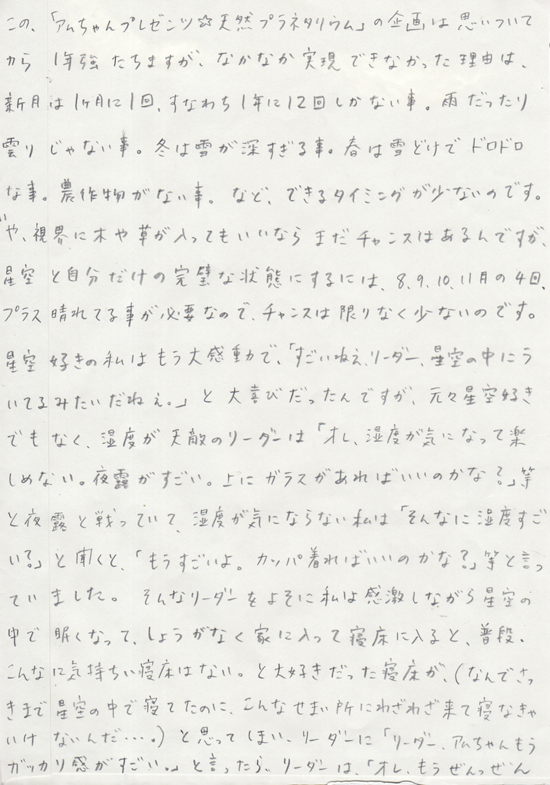 この、「アムちゃんプレゼンツ☆天然プラネタリウム」の企画は思いついて
から1年強たちますが、なかなか実現できなかった理由は、
新月は1ヶ月に1回、すなわち1年に12回しかない事。雨だったり
曇りじゃない事。冬は雪が深すぎる事。春は雪どけでドロドロ
な事。農作物がない事。など、できるタイミングが少ないのです。
や、視界に木や草が入ってもいいならまだチャンスはあるんですが、
星空と自分だけの完璧な状態にするには、8、9、10、11月の4回、
プラス晴れてる事が必要なので、チャンスは限りなく少ないのです。
星空好きの私はもう大感動で、「すごいねえ、リーダー、星空の中にう
いてるみたいだねぇ。」と大喜びだったんですが、元々星空好き
でもなく、湿度が天敵のリーダーは「オレ、湿度が気になって楽
しめない。夜露がすごい。上にガラスがあればいいのかな?」等
と夜露と戦っていて、湿度が気にならない私は「そんなに湿度すご
い?」と聞くと、「もうすごいよ。カッパ着ればいいのかな?」等と言っ
ていました。そんなリーダーをよそに私は感激しながら星空の
中で眠くなって、しょうがなく家に入って寝床に入ると、普段、
こんなに気持ちい寝床はない。と大好きだった寝床が、(なんでさっ
きまで星空の中で寝てたのに、こんなせまい所にわざわざ来て寝なきゃ
いけないんだ・・・・。)と思ってしまい、リーダーに「リーダー、アムちゃんもう
ガッカリ感がすごい。」と言ったら、リーダーは、「オレ、もうぜんっぜん